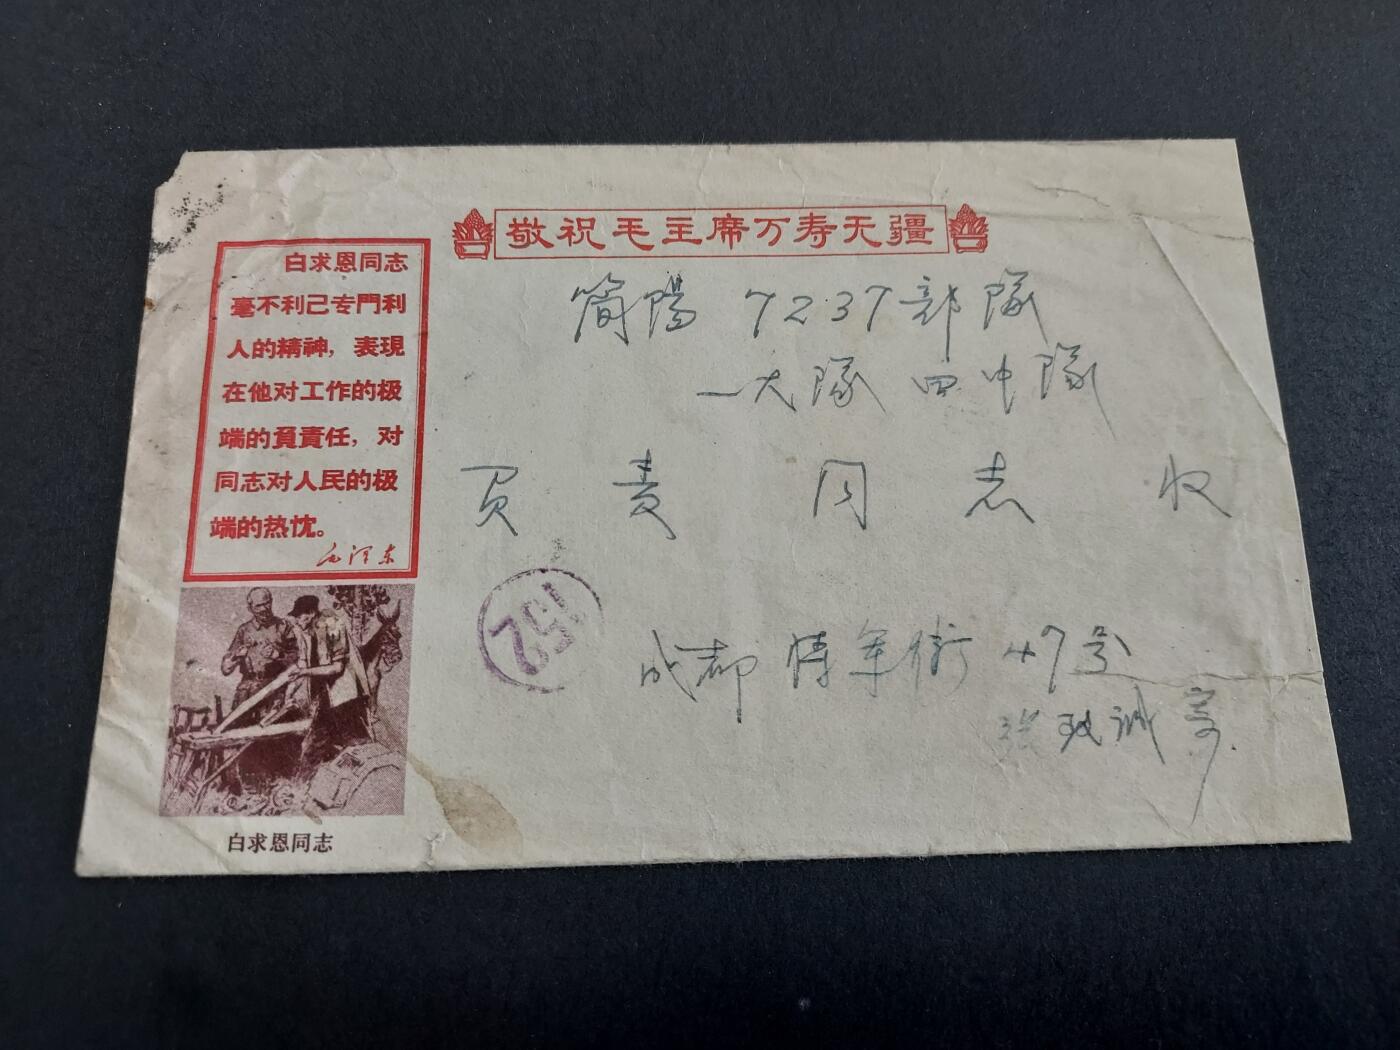 敬祝毛主席万寿无疆
白求恩同志
毫不利己专門利
人的精神，表現
在他对工作的极
端的負責任，对
同志对人民的极
端的热忱。
毛泽东
白求恩同志
简陽 7237部隊
一大隊 四中隊
负责同志 收
152
成都 将军街 47号
张 诚 寄